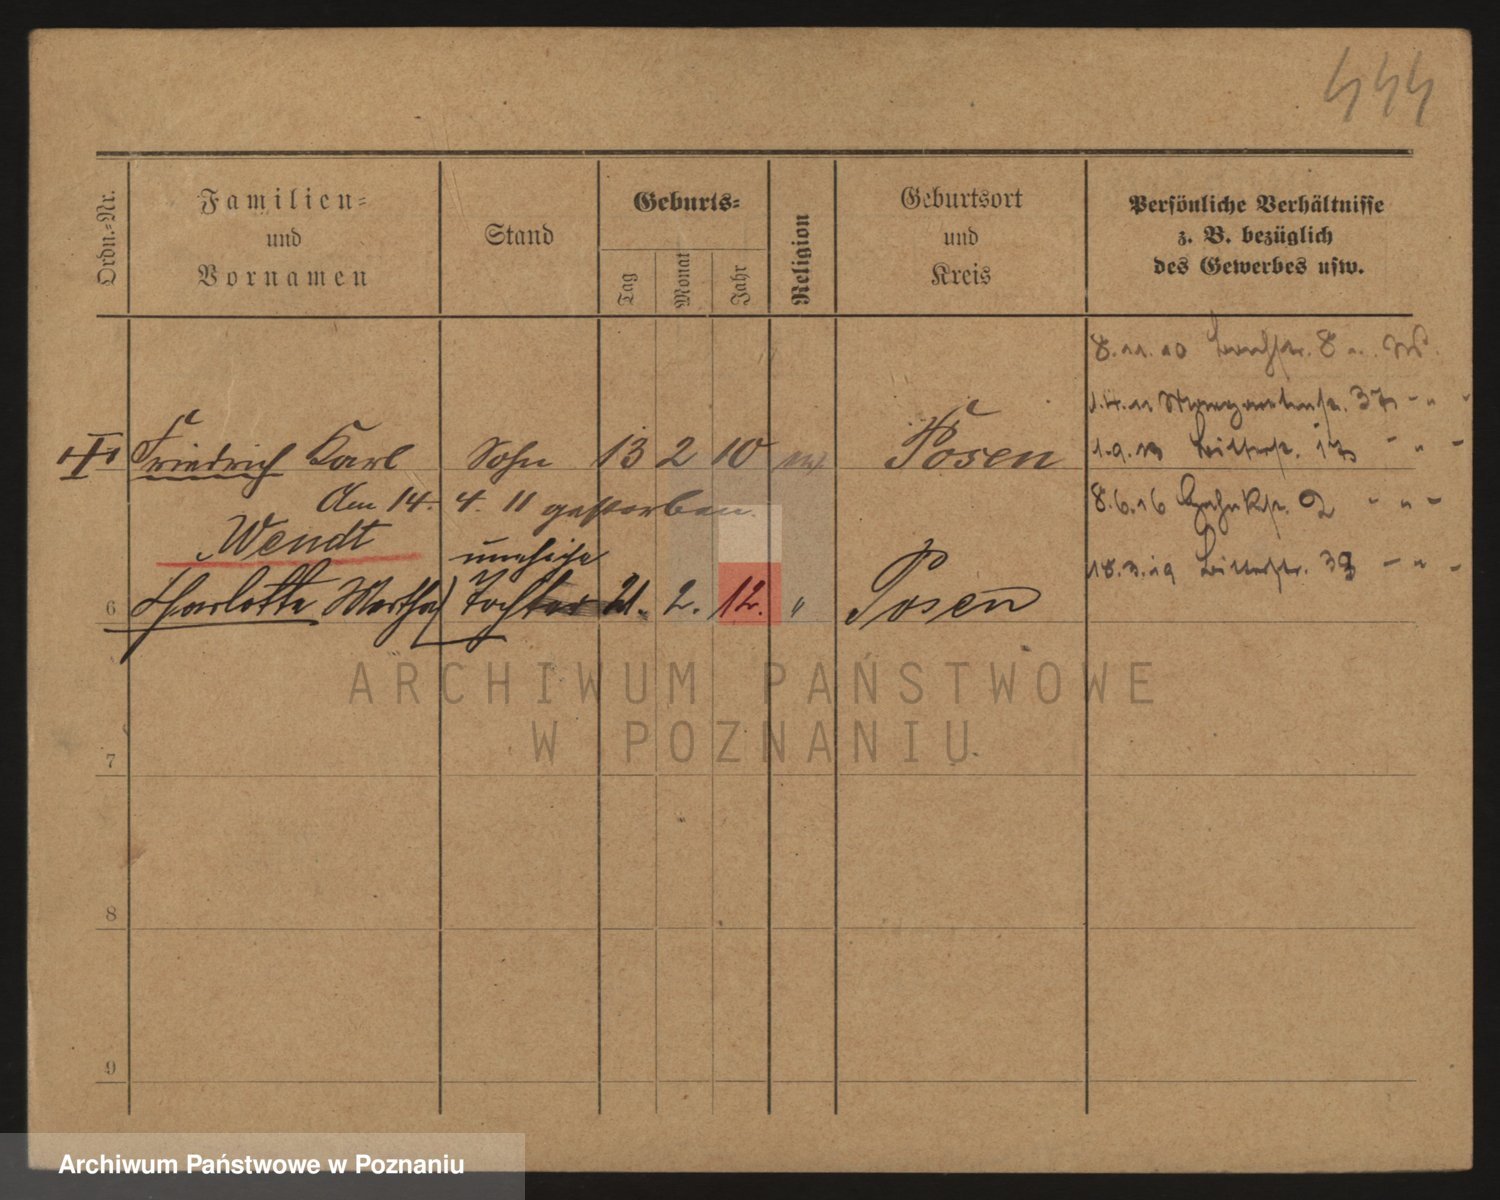 444
Ordn.-Nr.
Familien-
und
Vornamen
Stand
Geburts-
Tag
Monat
Jahr
Religion
Geburtsort
und
Kreis
Persönliche Verhältnisse
z. B. bezüglich
des Gewerbes usw.
8.11.10 8
1.4.11 37
Friedrich Karl Sohn 13 2 10 Posen
1.9.13
Am 14. 4. 11 gestorben.
8.6.16 2
Wendt
uneheliche
18.3.19 33
6 Charlotte Martha Tochter 21. 2. 12. " Posen
ARCHIWUM PAŃSTWOWE
W POZNANIU
7
8
9
Archiwum Państwowe w Poznaniu